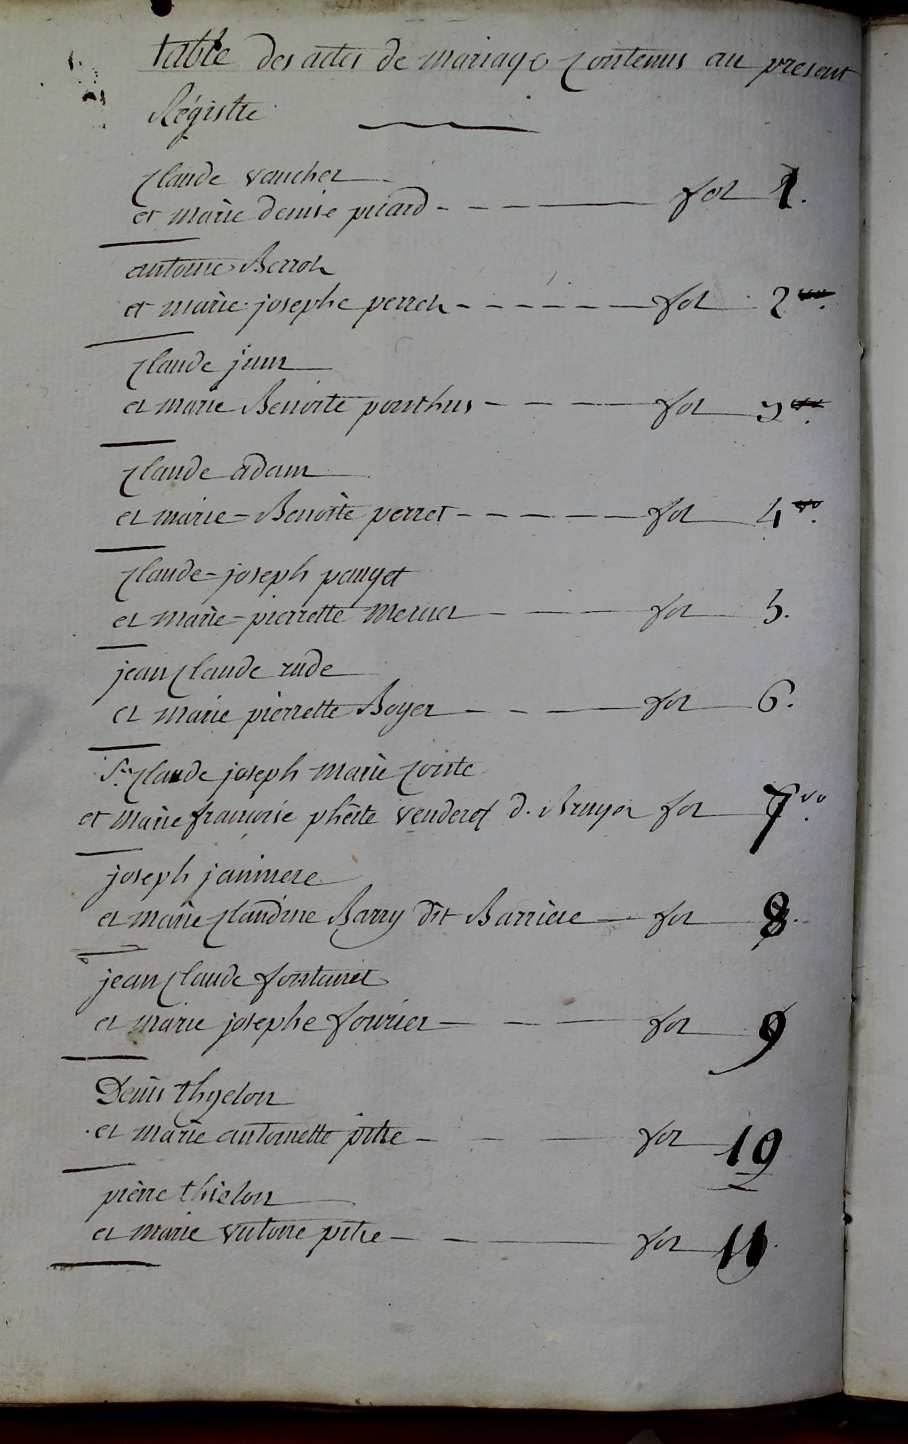 table des actes de mariage contenus au present
Régistre
Claude vaucher
et marie denise picard - - - fol 1.
antoine Berroh
et marie josephe perreh - - - - - - fol 2 vo.
Claude jum
et marie Benoite ponthus - - - - fol 3 vo.
Claude adam
et marie-Benoîte perret - - - - - fol 4 vo.
Claude-joseph pauget
et marie-pierrette Mercier - - - fol 5.
jean Claude rude
et marie pierrette Boyer - - - fol 6.
Sr. Claude joseph marie
et marie françoise d. fol 7 vo.
joseph janinere
et marie Claudine Barry dit Barriere fol 8.
jean Claude fontanet
et marie josephe fourier - - - fol 9
Denis thyelon
et marie antoinette pitre - - - fol 10
pierre thielon
et marie victoire pitre - - fol 11.